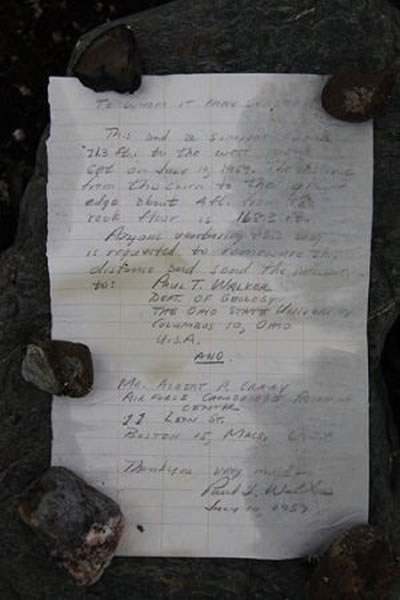 To whom it may concern
This and a similar cairn
21.3 ft. to the west were
set on July 10, 1959. The distance
from this cairn to the glacier
edge about 4 ft. from the
rock floor is 168.3 ft.
Anyone venturing this way
is requested to remeasure this
distance and send the information
to: Paul T. Walker
Dept. of Geology
The Ohio State University
Columbus 10, Ohio
U.S.A.
AND
Mr. Albert P. Crary
Air Force Cambridge Research
Center
11 Leon St.
Boston 15, Mass. U.S.A.
Thankyou very much
Paul T. Walker
July 10, 1959